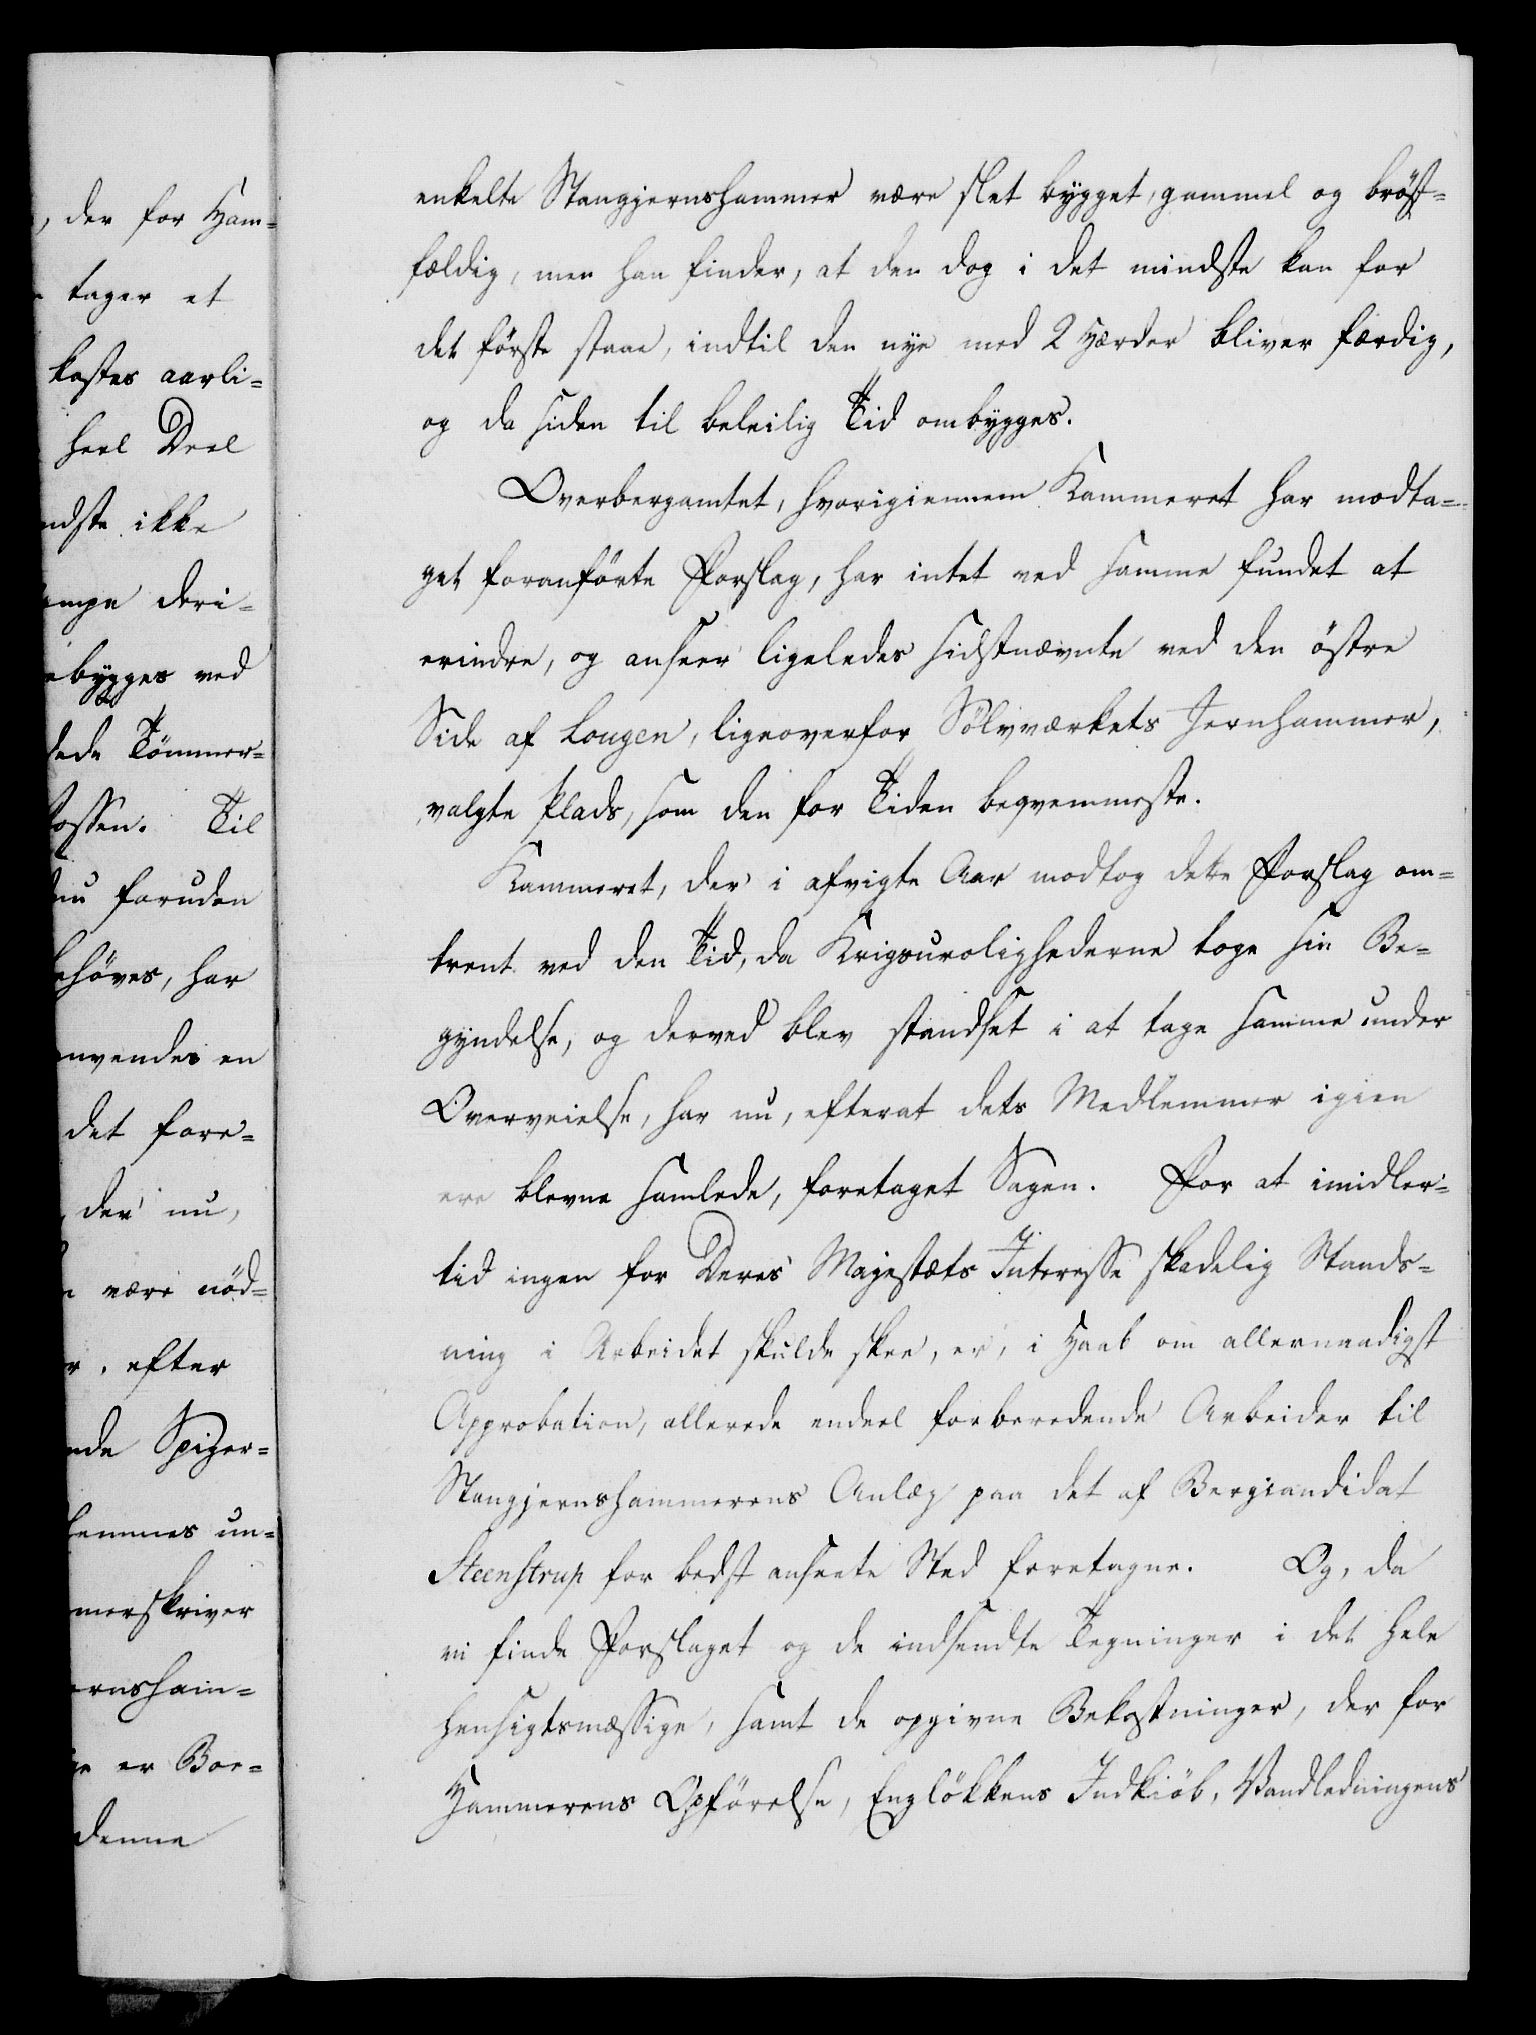 , der for Ham-
tager et
kostes aarli-
heel Deel
ndste ikke
deri-
bygges ved
Tömmer-
fossen. Til
nu foruden
ehöves, har
nvendes en
det fore-
der nu,
være nöd-
efter
nde Spiger-
emmes un-
merskriver
ernsham-
er Boe-
denne
enkelte Stangjernshammer være slet bygget, gammel og bröst-
fældig, men han finder, at den dog i det mindste kan for
det förste staae, indtil den nye med 2 Herder bliver færdig,
og da siden til beleilig Tid ombygges.
Overbergamtet, hvorigiennem Kammeret har modta-
get foranförte Forslag, har intet ved samme fundet at
erindre, og anseer ligeledes sidstnævnte ved den östre
Side af Lougen, ligeoverfor Sölvværkets Jernhammer,
valgte Plads, som den for Tiden beqvemmeste.
Kammeret, der i afvigte Aar modtog dette Forslag om-
trent ved den Tid, da Krigsurolighederne toge sin Be-
gyndelse, og derved blev standset i at tage samme under
Overveielse, har nu, efterat dets Medlemmer igien
ere blevne samlede, foretaget Sagen. For at imidler-
tid ingen for Deres Majestæts Interesse skadelig Stands-
ning i Arbeidet skulde skee, er, i Haab om allernaadigst
Approbation, allerede endeel forberedende Arbeider til
Stangjernshammerens Anlæg paa det af Bergcandidat
Steenstrup for bedst anseete Sted foretagne. Og, da
vi finde Forslaget og de indsendte Tegninger i det hele
hensigtsmæssige, samt de opgivne Bekostninger, der for
Hammerens Opförelse, Englökkens Indkiöb, Vandledningens